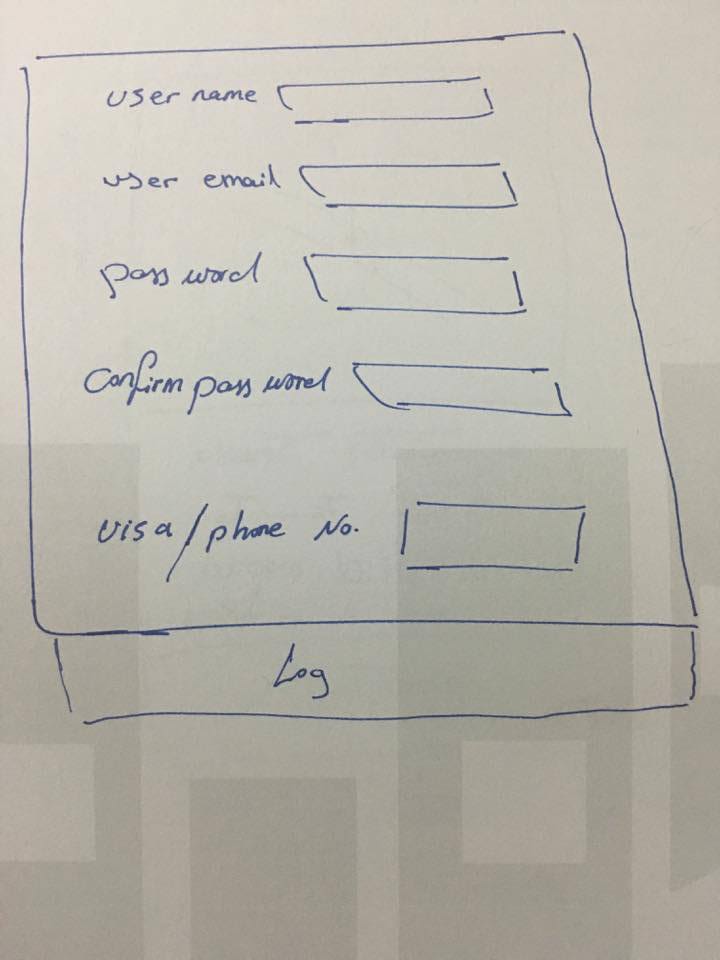 user name
user email
pass word
Confirm pass word
visa/phone No.
Log